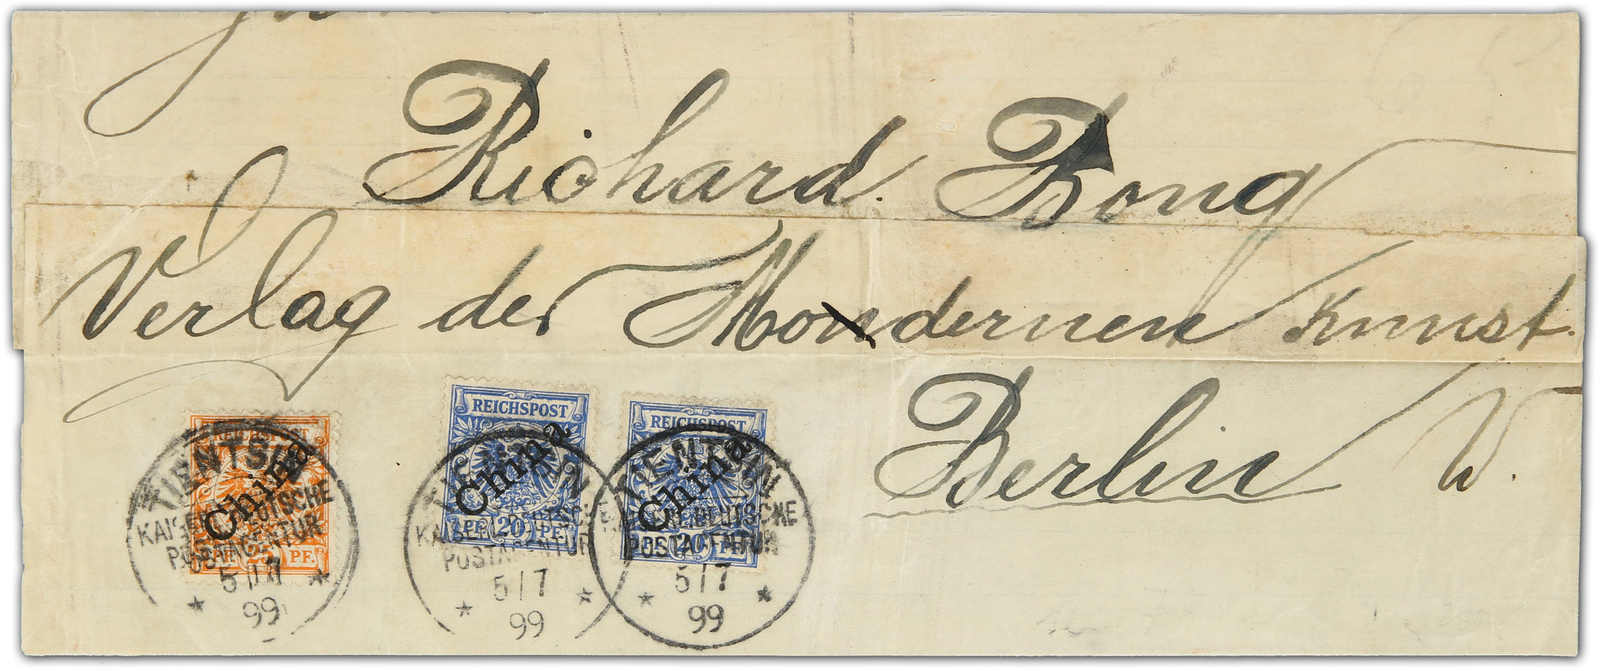 Richard Bong
Verlag der Mondernen Kunst.
Berlin W.
REICHSPOST
China
PF 20 PF
REICHSPOST
China
20 PF
China
25 PF
TIENTSIN
KAISERL. DEUTSCHE
POSTAGENTUR
5/7
99
POSTAGENTUR
5/7
99
TIENTSIN
KAISERL. DEUTSCHE
POSTAGENTUR
5/7
99